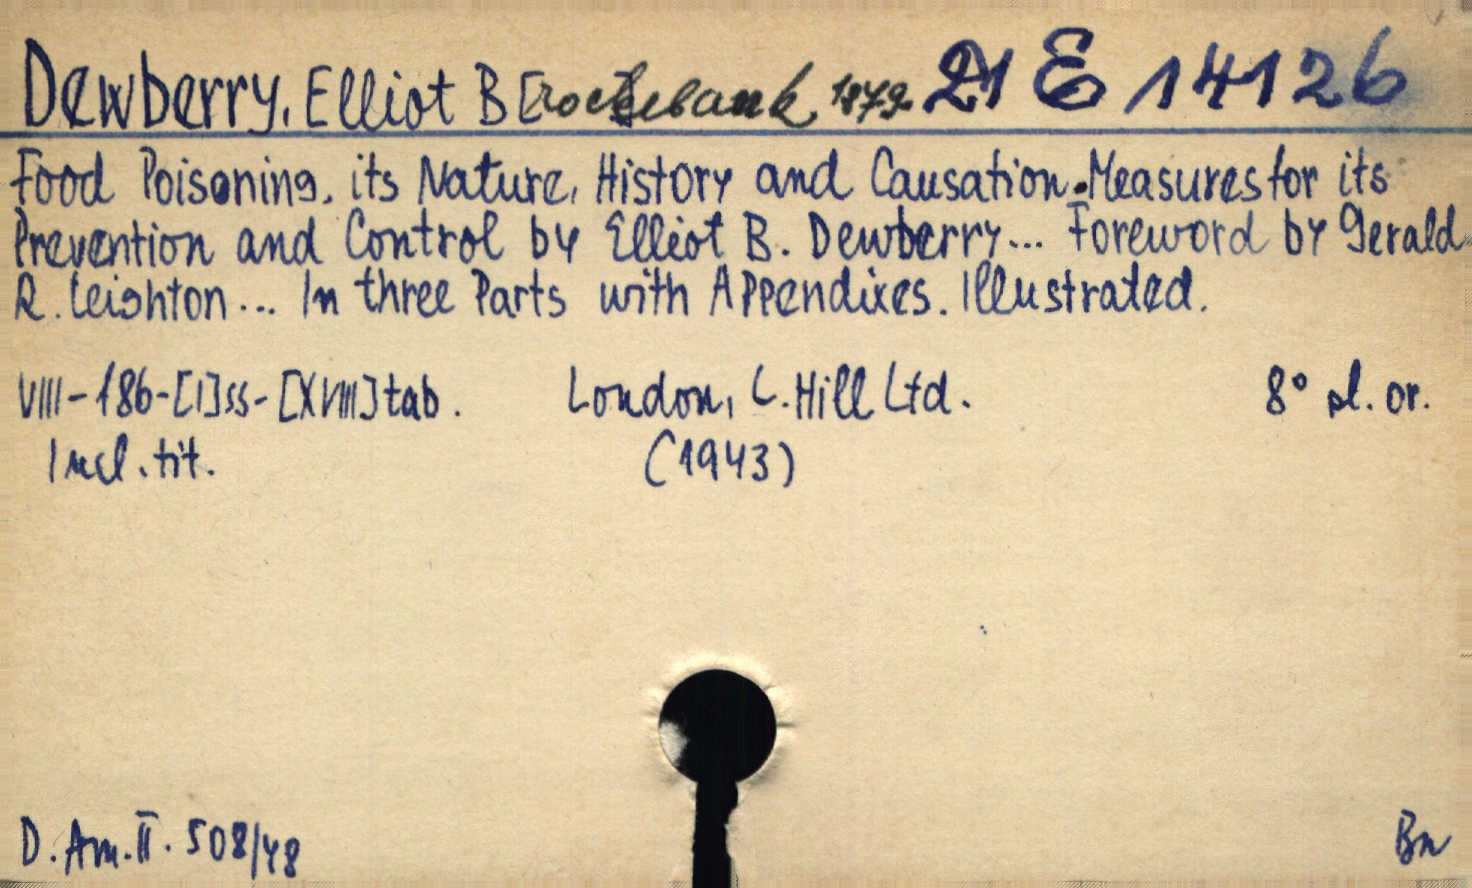 Dewberry, Elliot B[rockebank 1879- 21 E 14126
Food Poisoning, its Nature, History and Causation. Measures for its
Prevention and Control by Elliot B. Dewberry... Foreword by Gerald
R. Leighton... In three Parts with Appendixes. Illustrated.
VIII-186-[1]ss-[XVIII]tab. London, L. Hill Ltd. 8° pl. or.
Incl. tit. (1943)
D. Am. II. 508/48 Bn